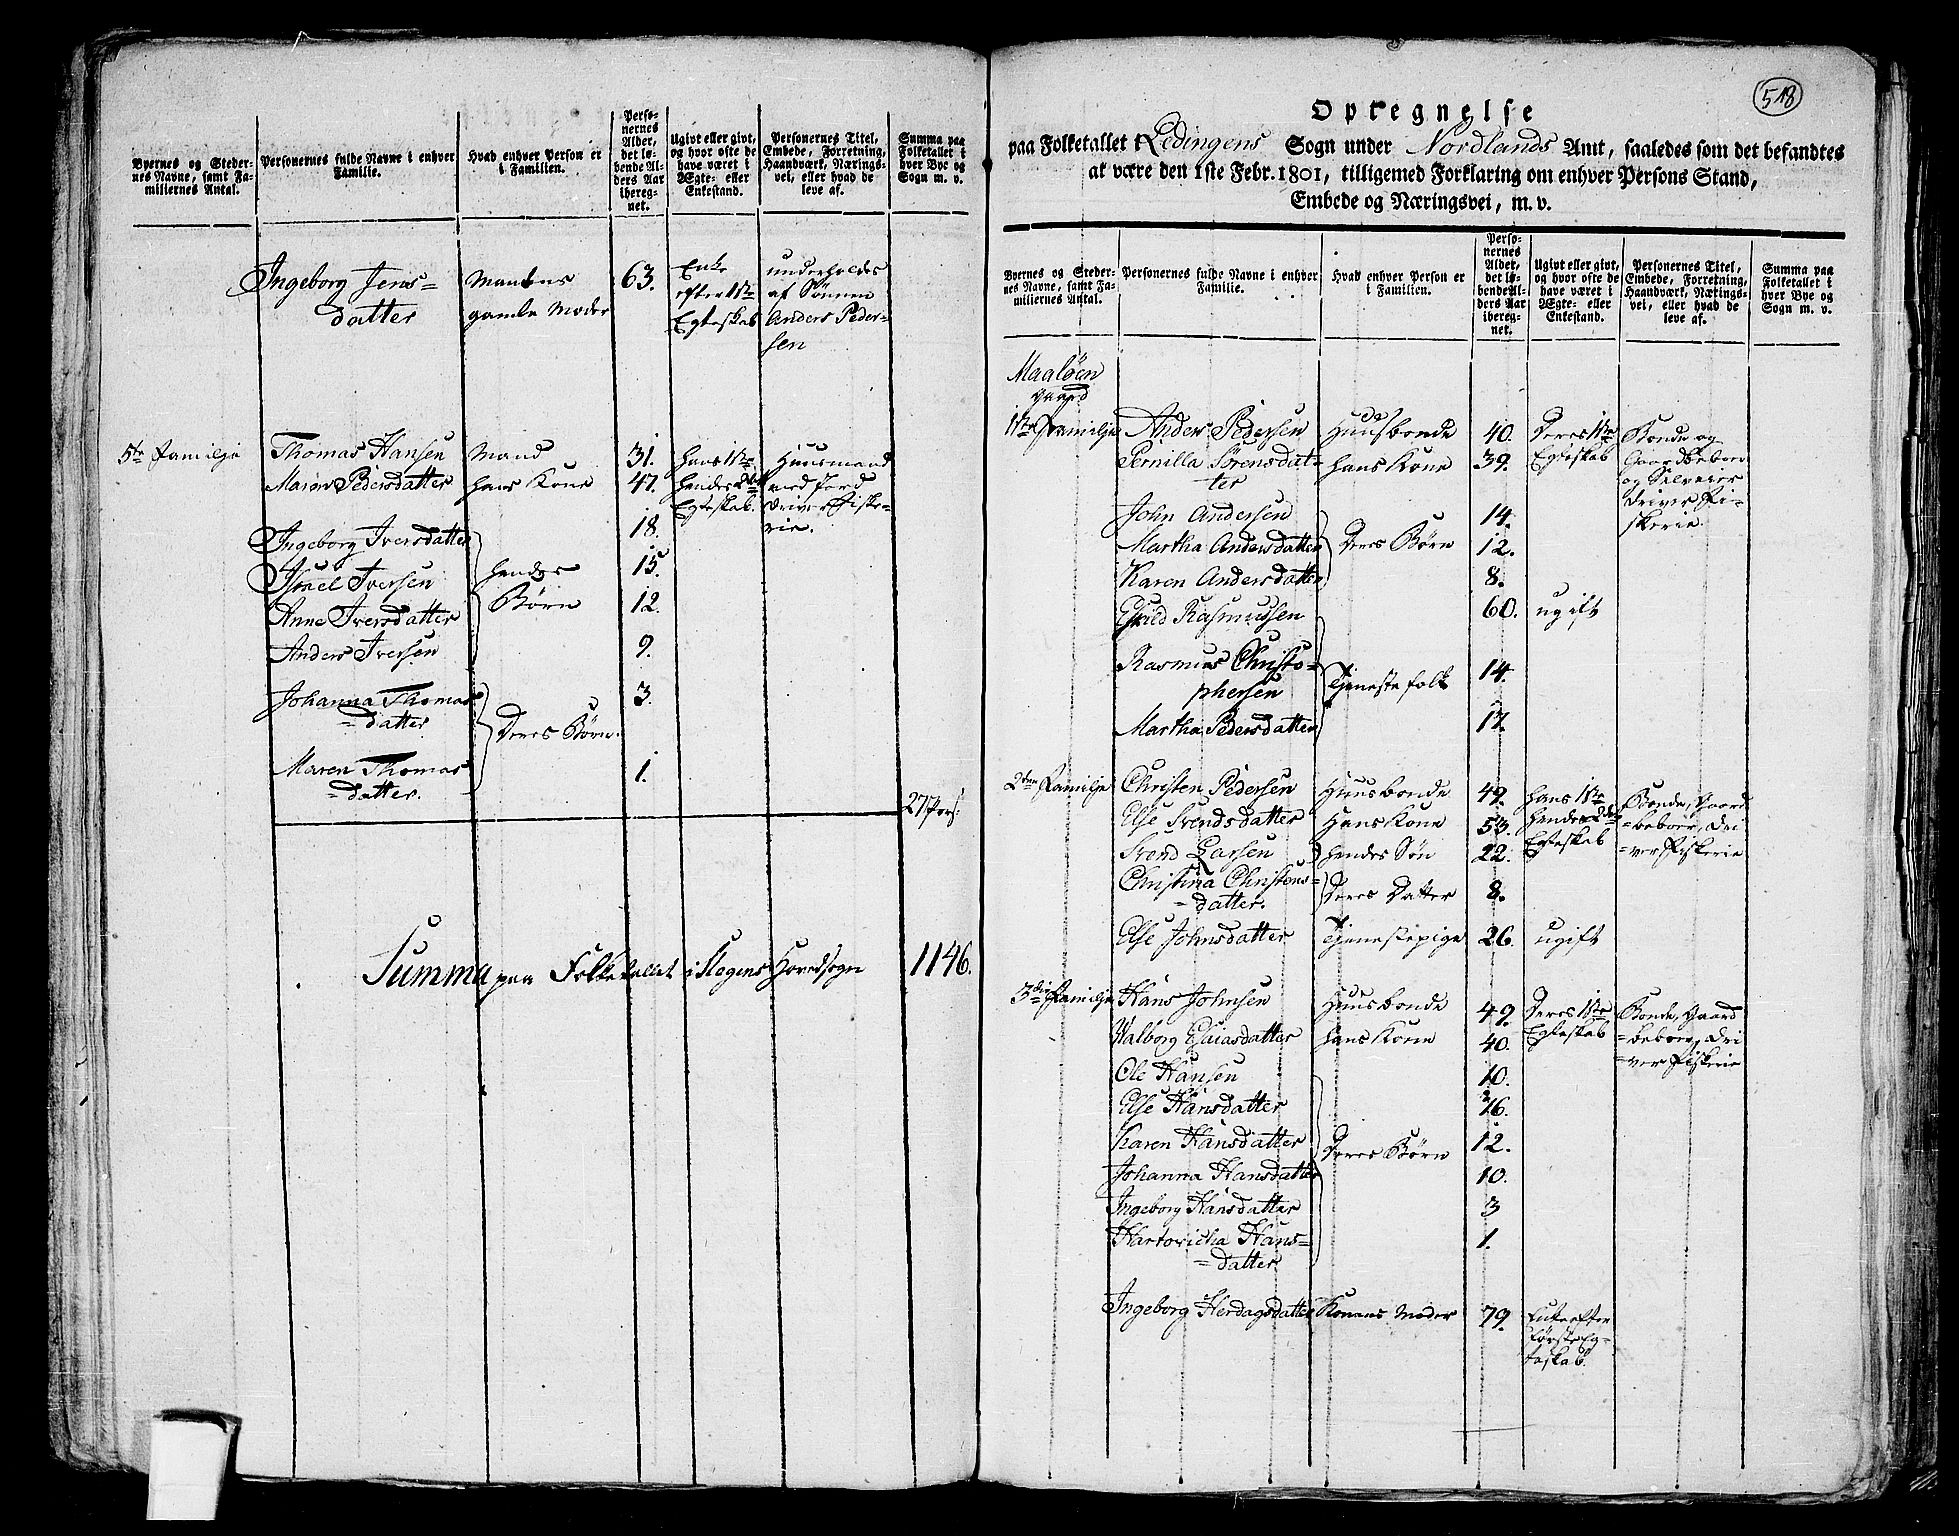 Byernes og Steder-
nes Navne, samt Fa-
miliernes Antal.
Personernes fulde Navne i enhver
Familie.
Hvad enhver Person er
i Familien.
Perso-
nernes
Alder,
det lø-
bende Al-
ders Aar
ibereg-
net.
Ugivt eller givt,
og hvor ofte de
have været i
Ægte- eller
Enkestand.
Personernes Titel,
Embede, Forretning,
Haandværk, Nærings-
vei, eller hvad de
leve af.
Summa paa
Folketallet i
hver Bye og
Sogn m. v.
Ingeborg Jens- Mandens 63. Enke underholdes
datter gamle Moder efter 1ste af Sønnen
Egteskab Anders Peder-
sen
5te Familje Thomas Hansen Mand 31. hans 1ste Huusmand
Maren Pedersdatter hans Kone 47. hendes 2det med Jord
Egteskab. driver Fiske-
rie.
Ingeborg Iversdatter 18.
Israel Iversen hendes 15.
Anne Iversdatter Børn 12.
Anders Iversen 9.
Johanna Thomas 3.
=datter Deres Børn.
Maren Thomas 1.
=datter.
27 Pers:
Summa paa Folketallet i Stegens Hovedsogn 1146.
518
Opregnelse
paa Folketallet i Lødingens Sogn under Nordlands Amt, saaledes som det befandtes
at være den 1ste Febr. 1801, tilligemed Forklaring om enhver Persons Stand,
Embede og Næringsvei, m. v.
Byernes og Steder-
nes Navne, samt Fa-
miliernes Antal.
Personernes fulde Navne i enhver
Familie.
Hvad enhver Person er
i Familien.
Perso-
nernes
Alder,
det lø-
bende Al-
ders Aar
ibereg-
net.
Ugivt eller givt,
og hvor ofte de
have været i
Ægte- eller
Enkestand.
Personernes Titel,
Embede, Forretning,
Haandværk, Nærings-
vei, eller hvad de
leve af.
Summa paa
Folketallet i
hver Bye og
Sogn m. v.
Maaløen
Gaard
1ste Familje Anders Pedersen Huusbonde 40. Deres 1ste Bonde og
Pernilla Sørensdat- hans Kone 39. Egteskab Gaardbeboer
ter og Selveier
driver Fi-
skerie.
John Andersen 14.
Martha Andersdatter Deres Børn 12.
Karen Andersdatter 8.
Rasmussen 60. ugift
Rasmus Christo- Tjenestefolk 14.
phersen
Martha Pedersdatter 17.
2den Familje Christen Pedersen Huusbonde 49. hans 1ste Bonde, Gaard
Else Svendsdatter Hans Kone 53. hendes 2det =beboer, dri
Svend Larsen hendes Søn 22. Egteskab =ver Fiskerie
Christina Christens= Deres Datter 8.
=datter.
Else Johnsdatter Tjenestepige 26. ugift
3die Familje Hans Johnsen Huusbonde 49. Deres 1ste Bonde, Gaard
Valborg Esaiasdatter hans Kone 40. Egteskab =beboer, dri
=ver Fiskerie
Ole Hansen 10.
Else Hansdatter 16.
Karen Hansdatter Deres Børn 12.
Johanna Hansdatter 10.
Ingeborg Hansdatter 3
Hartvicha Hans= 1.
=datter.
Ingeborg Herdagsdatter Konens Moder 79. Enke efter
første Eg-
teskab.